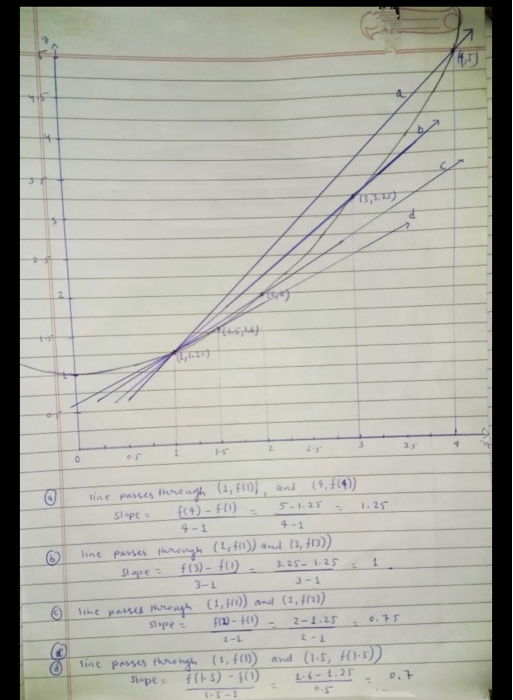 5
a
(4,5)
4.5
b
4
c
3.5
(3,3.25)
d
3
2.5
2
(2,2)
1.5
(1.5,1.6)
(1,1.25)
1
0.5
0 0.5 1 1.5 2 2.5 3 3.5 4
(a) line passes through (1,f(1)), and (4,f(4))
slope = f(4) - f(1) / 4-1 = 5-1.25 / 4-1 = 1.25
(b) line passes through (1,f(1)) and (3,f(3))
slope = f(3) - f(1) / 3-1 = 3.25-1.25 / 3-1 = 1
(c) line passes through (1,f(1)) and (2,f(2))
slope = f(2) - f(1) / 2-1 = 2-1.25 / 2-1 = 0.75
(d) line passes through (1,f(1)) and (1.5, f(1.5))
slope = f(1.5) - f(1) / 1.5-1 = 1.6-1.25 / 0.5 = 0.7